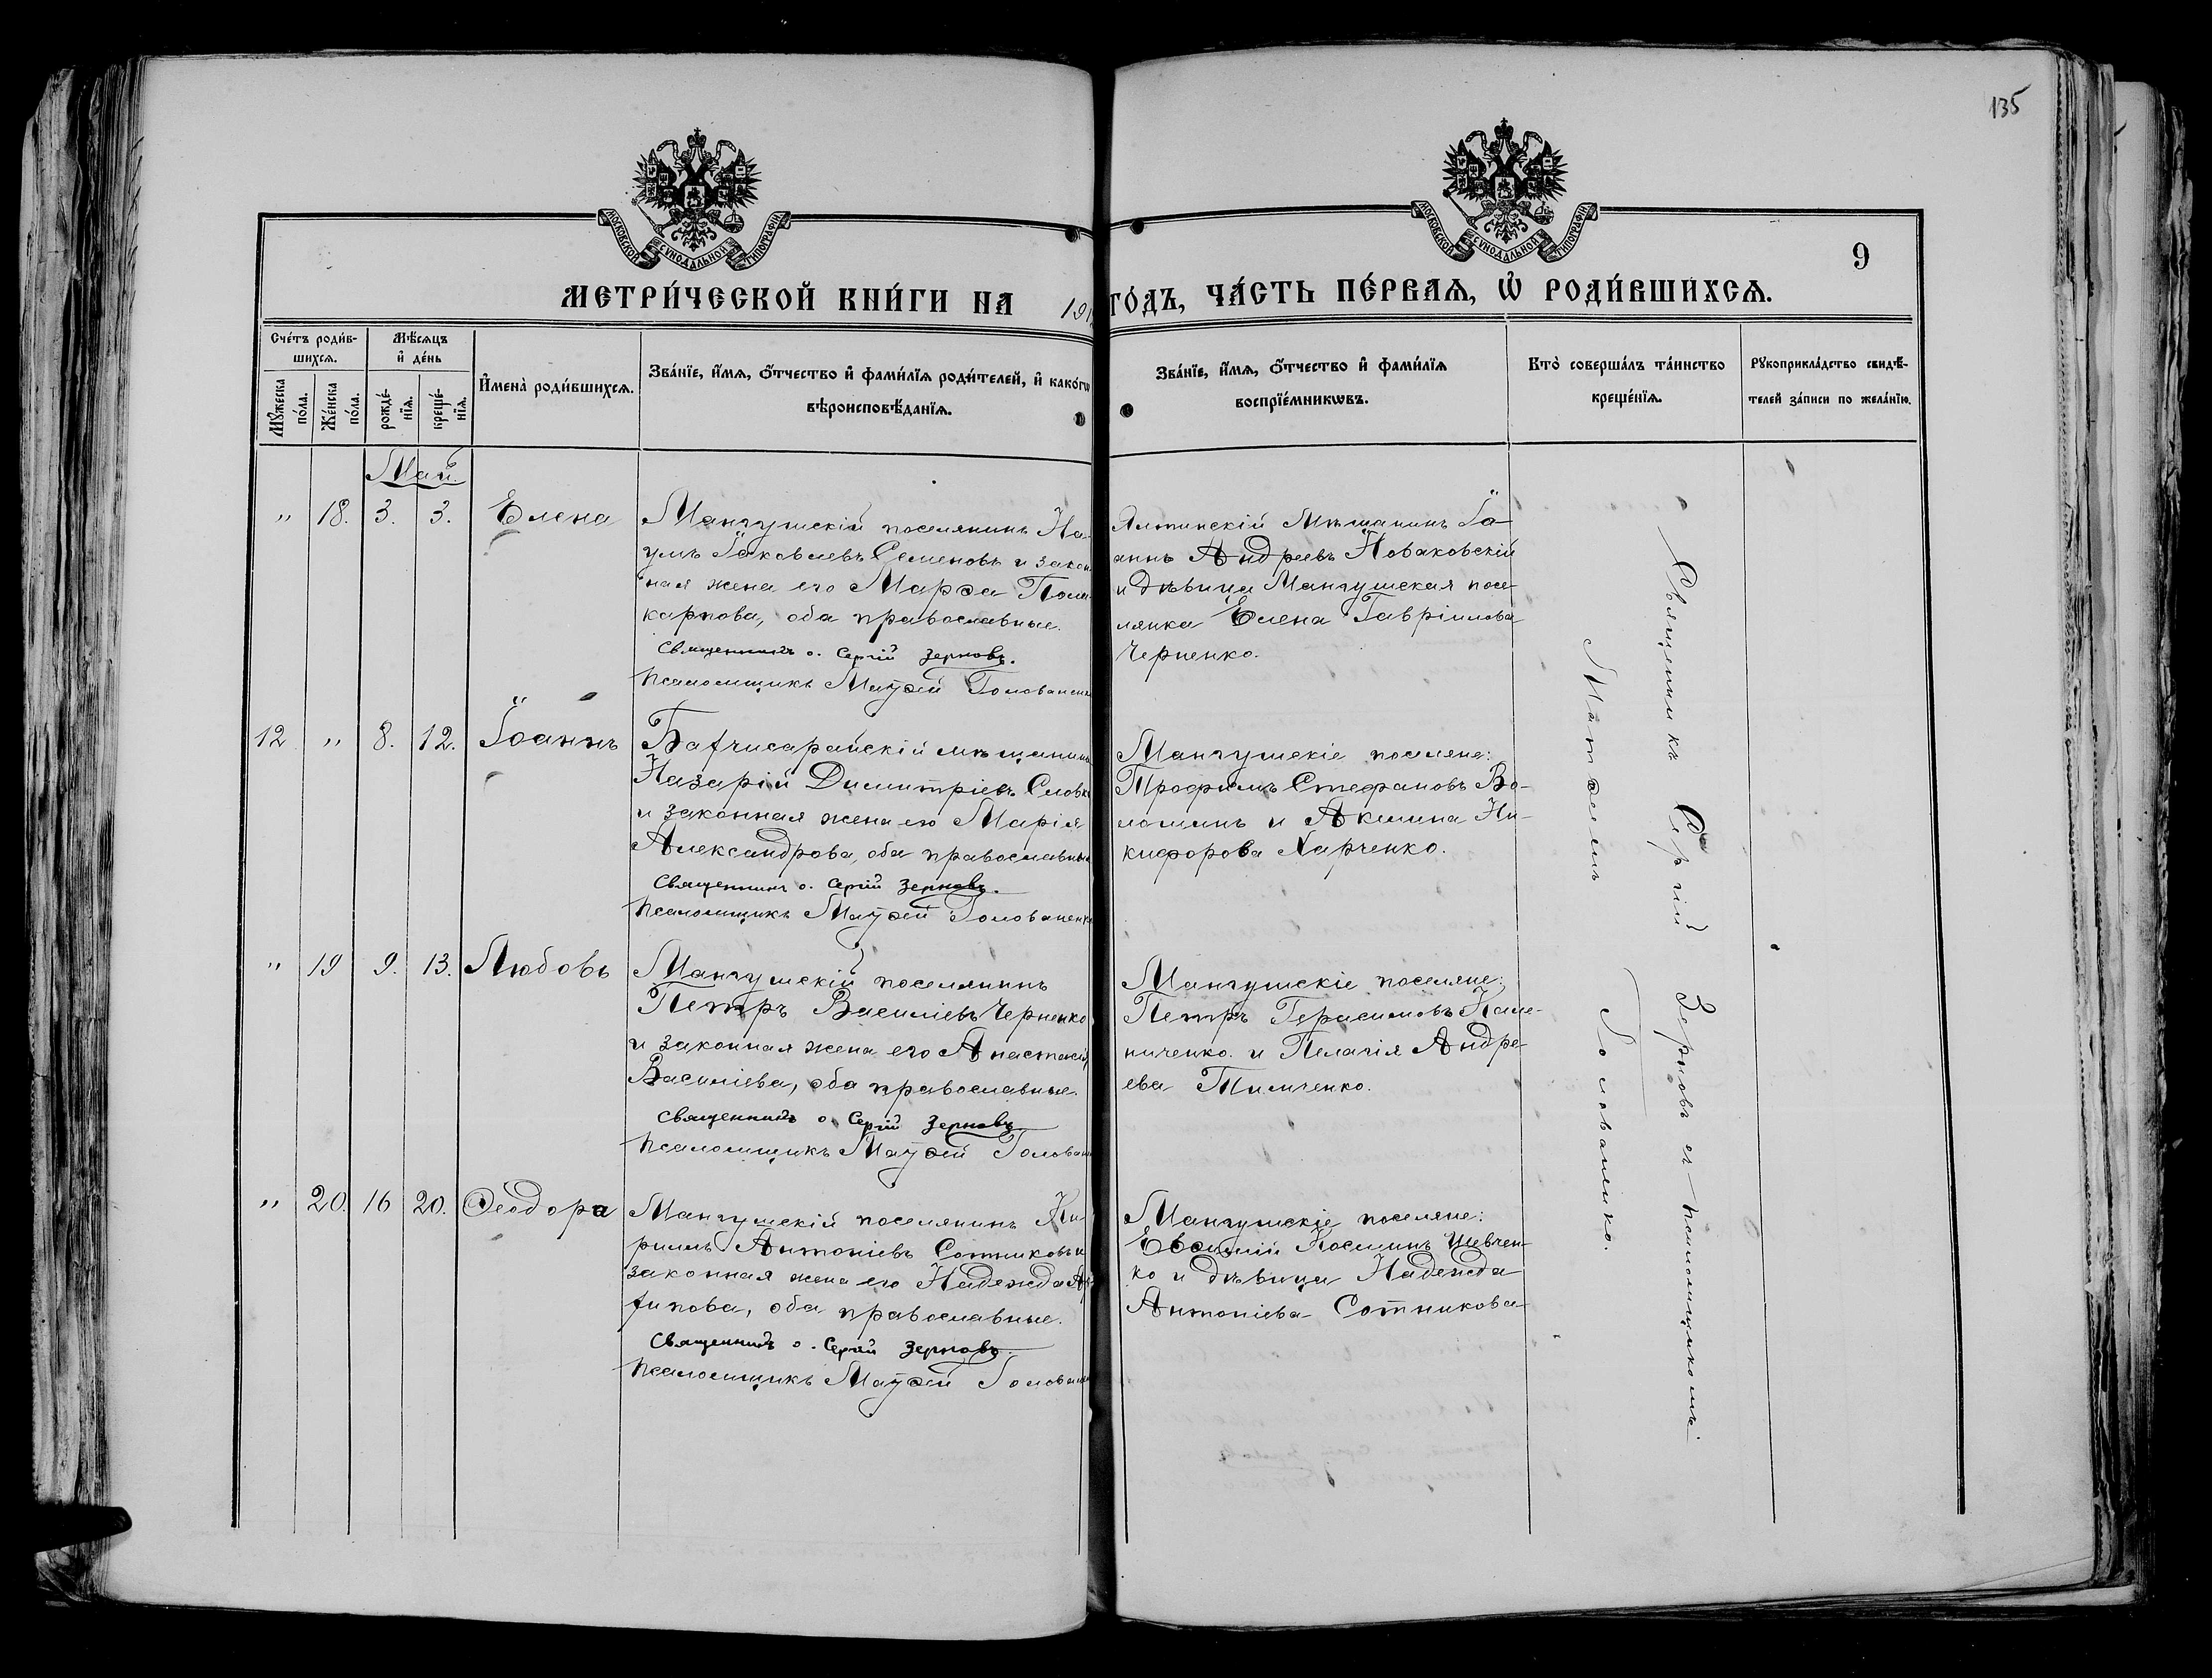 135
МОСКОВСКОЙ СѴНОДАЛЬНОЙ ТИПОГРАФІИ
МОСКОВСКОЙ СѴНОДАЛЬНОЙ ТИПОГРАФІИ
9
МЕТРИ́ЧЕСКОЙ КНИ́ГИ НА 191 ГО́ДЪ, ЧА́СТЬ ПЕ́РВАѦ, Ѡ РОДИ́ВШИХСѦ.
Сче́тъ роди́в-
шихсѧ.
Мꙋ́жеска по́ла.
Же́нска по́ла.
Мѣ́сѧцъ
и҆ де́нь
рожде́-
нїѧ.
креще́-
нїѧ.
И҆мена̀ роди́вшихсѧ.
Зва́нїе, и҆́мѧ, ѻ҆́тчество и҆ фами́лїѧ роди́телей, и҆ како́гѡ
вѣроисповѣ́данїѧ.
Зва́нїе, и҆́мѧ, ѻ҆́тчество и҆ фами́лїѧ
воспрїе́мникѡвъ.
Кто̀ соверша́лъ та́инство
креще́нїѧ.
Рꙋкоприкла́дство свидѣ́-
телей за́писи по жела́нїю.
Май.
" 18. 3. 3. Елена
Мангушскій поселянинъ На-
умъ Іаковлевъ Семеновъ и закон
ная жена его Марѳа Поли
карпова, оба православные.
Священникъ о. Сергій Зерновъ.
Псаломщикъ Матѳей Голованенко
Ялтинскій Мѣщанинъ Іо-
аннъ Андреевъ Новаковскій
и дѣвица Мангушская посе-
лянка Елена Гавріилова
Черненко.
12 " 8. 12. Іоаннъ
Бахчисарайскій мѣщанинъ
Назарій Димитріевъ
и законная жена его Марія
Александрова, оба православные
Священникъ о. Сергій Зерновъ.
Псаломщикъ Матѳей Голованенко
Мангушскіе поселяне:
Трофимъ Стефановъ Во-
лошинъ и Акилина Ни-
кифорова Харченко.
" 19 9. 13. Любовь
Мангушскій поселянинъ
Петръ Василіевъ Черненко
и законная жена его Анастасія
Василіева, оба православные.
Священникъ о. Сергій Зерновъ
Псаломщикъ Матѳей Голован
Мангушскіе поселяне:
Петръ Герасимовъ Кале-
ниченко и Пелагія Андре-
ева Тимченко.
" 20. 16 20. Ѳеодора
Мангушскій поселянинъ Ки-
риллъ Антоніевъ Сотниковъ и
законная жена его Надежда Ар
хипова, оба православные.
Священникъ о. Сергій Зерновъ.
Псаломщикъ Матѳей Голован
Мангушскіе поселяне:
Евѳимій Косминъ Шевчен-
ко и дѣвица Надежда
Антоніева Сотникова
Священникъ Сергій Зерновъ съ псаломщикомъ
Матѳеемъ Голованенко.